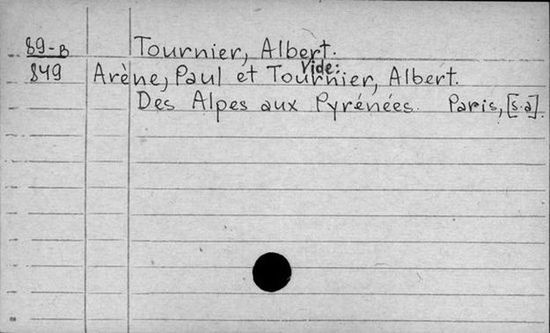 89-B Tournier, Albert.
Vide:
849 Arène, Paul et Tournier, Albert.
Des Alpes aux Pyrénées. Paris, [s.a].